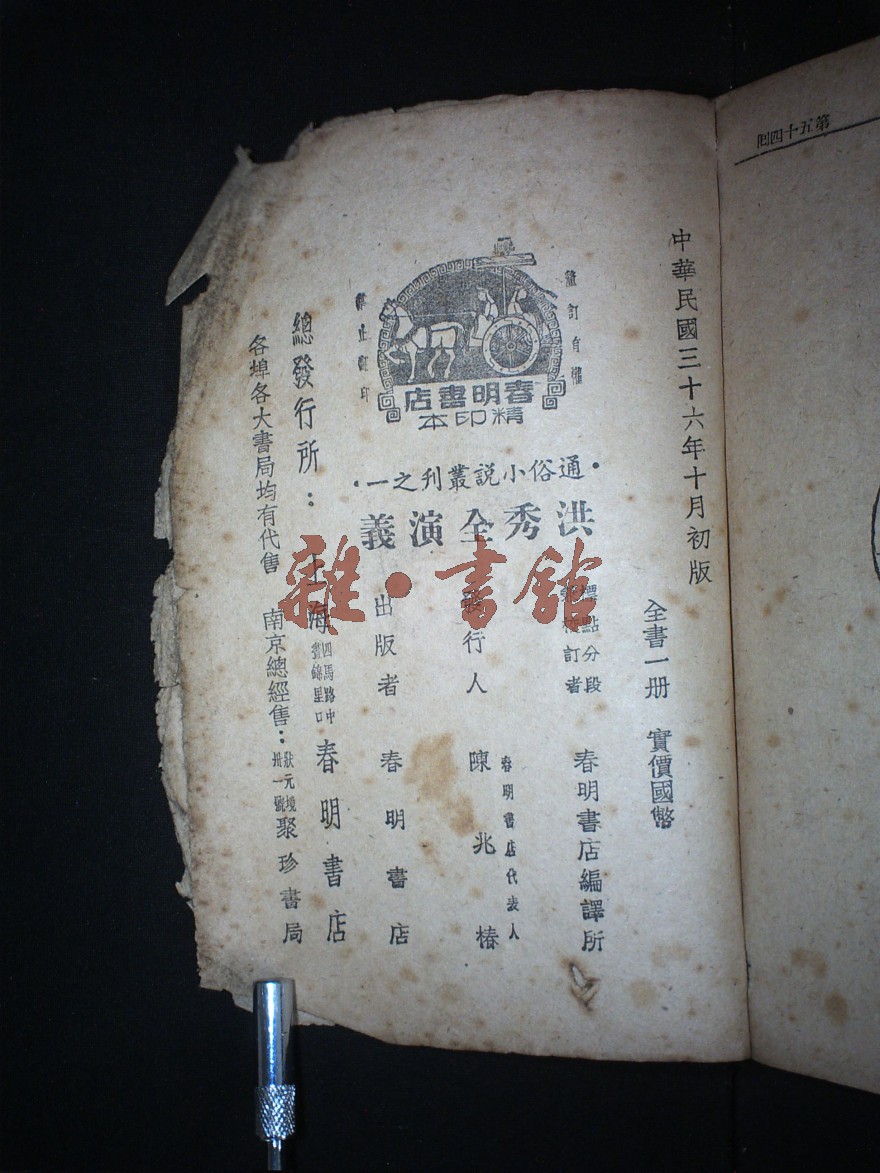 第五十四回
中華民國三十六年十月初版
全書一册 實價國幣
重訂有權
禁止翻印
春明書店
精印本
·通俗小説叢刊之一·
洪秀全演義
標點分段
者 春明書店編譯所
發行人 春明書店代表人 陳兆椿
出版者 春明書店
總發行所： 上海 四馬路中 晝錦里口 春明書店
各埠各大書局均有代售 南京總經售： 狀元境 卅一號 聚珍書局
雜·書館